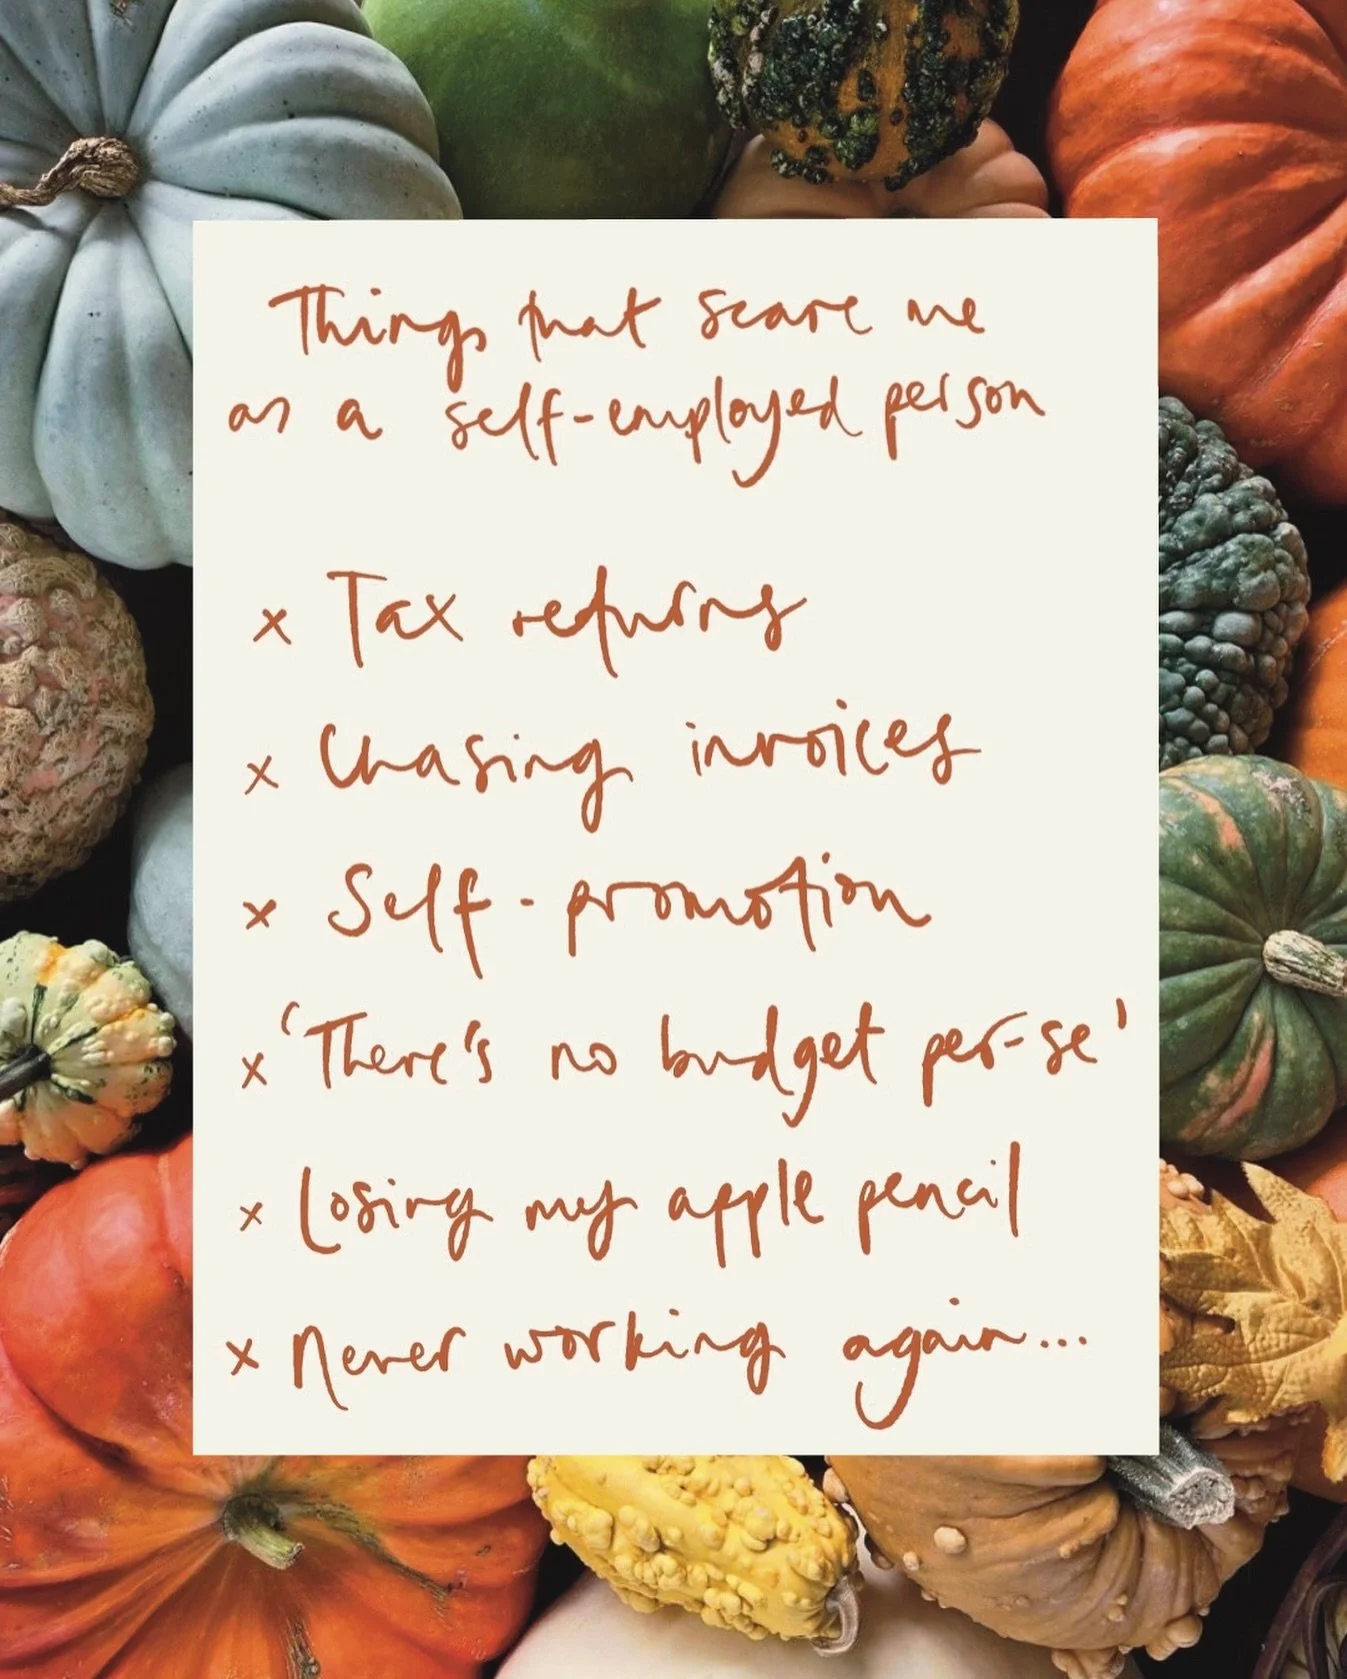 Things that scare me
as a self-employed person
x Tax returns
x Chasing invoices
x Self-promotion
x 'There's no budget per-se'
x Losing my apple pencil
x Never working again...